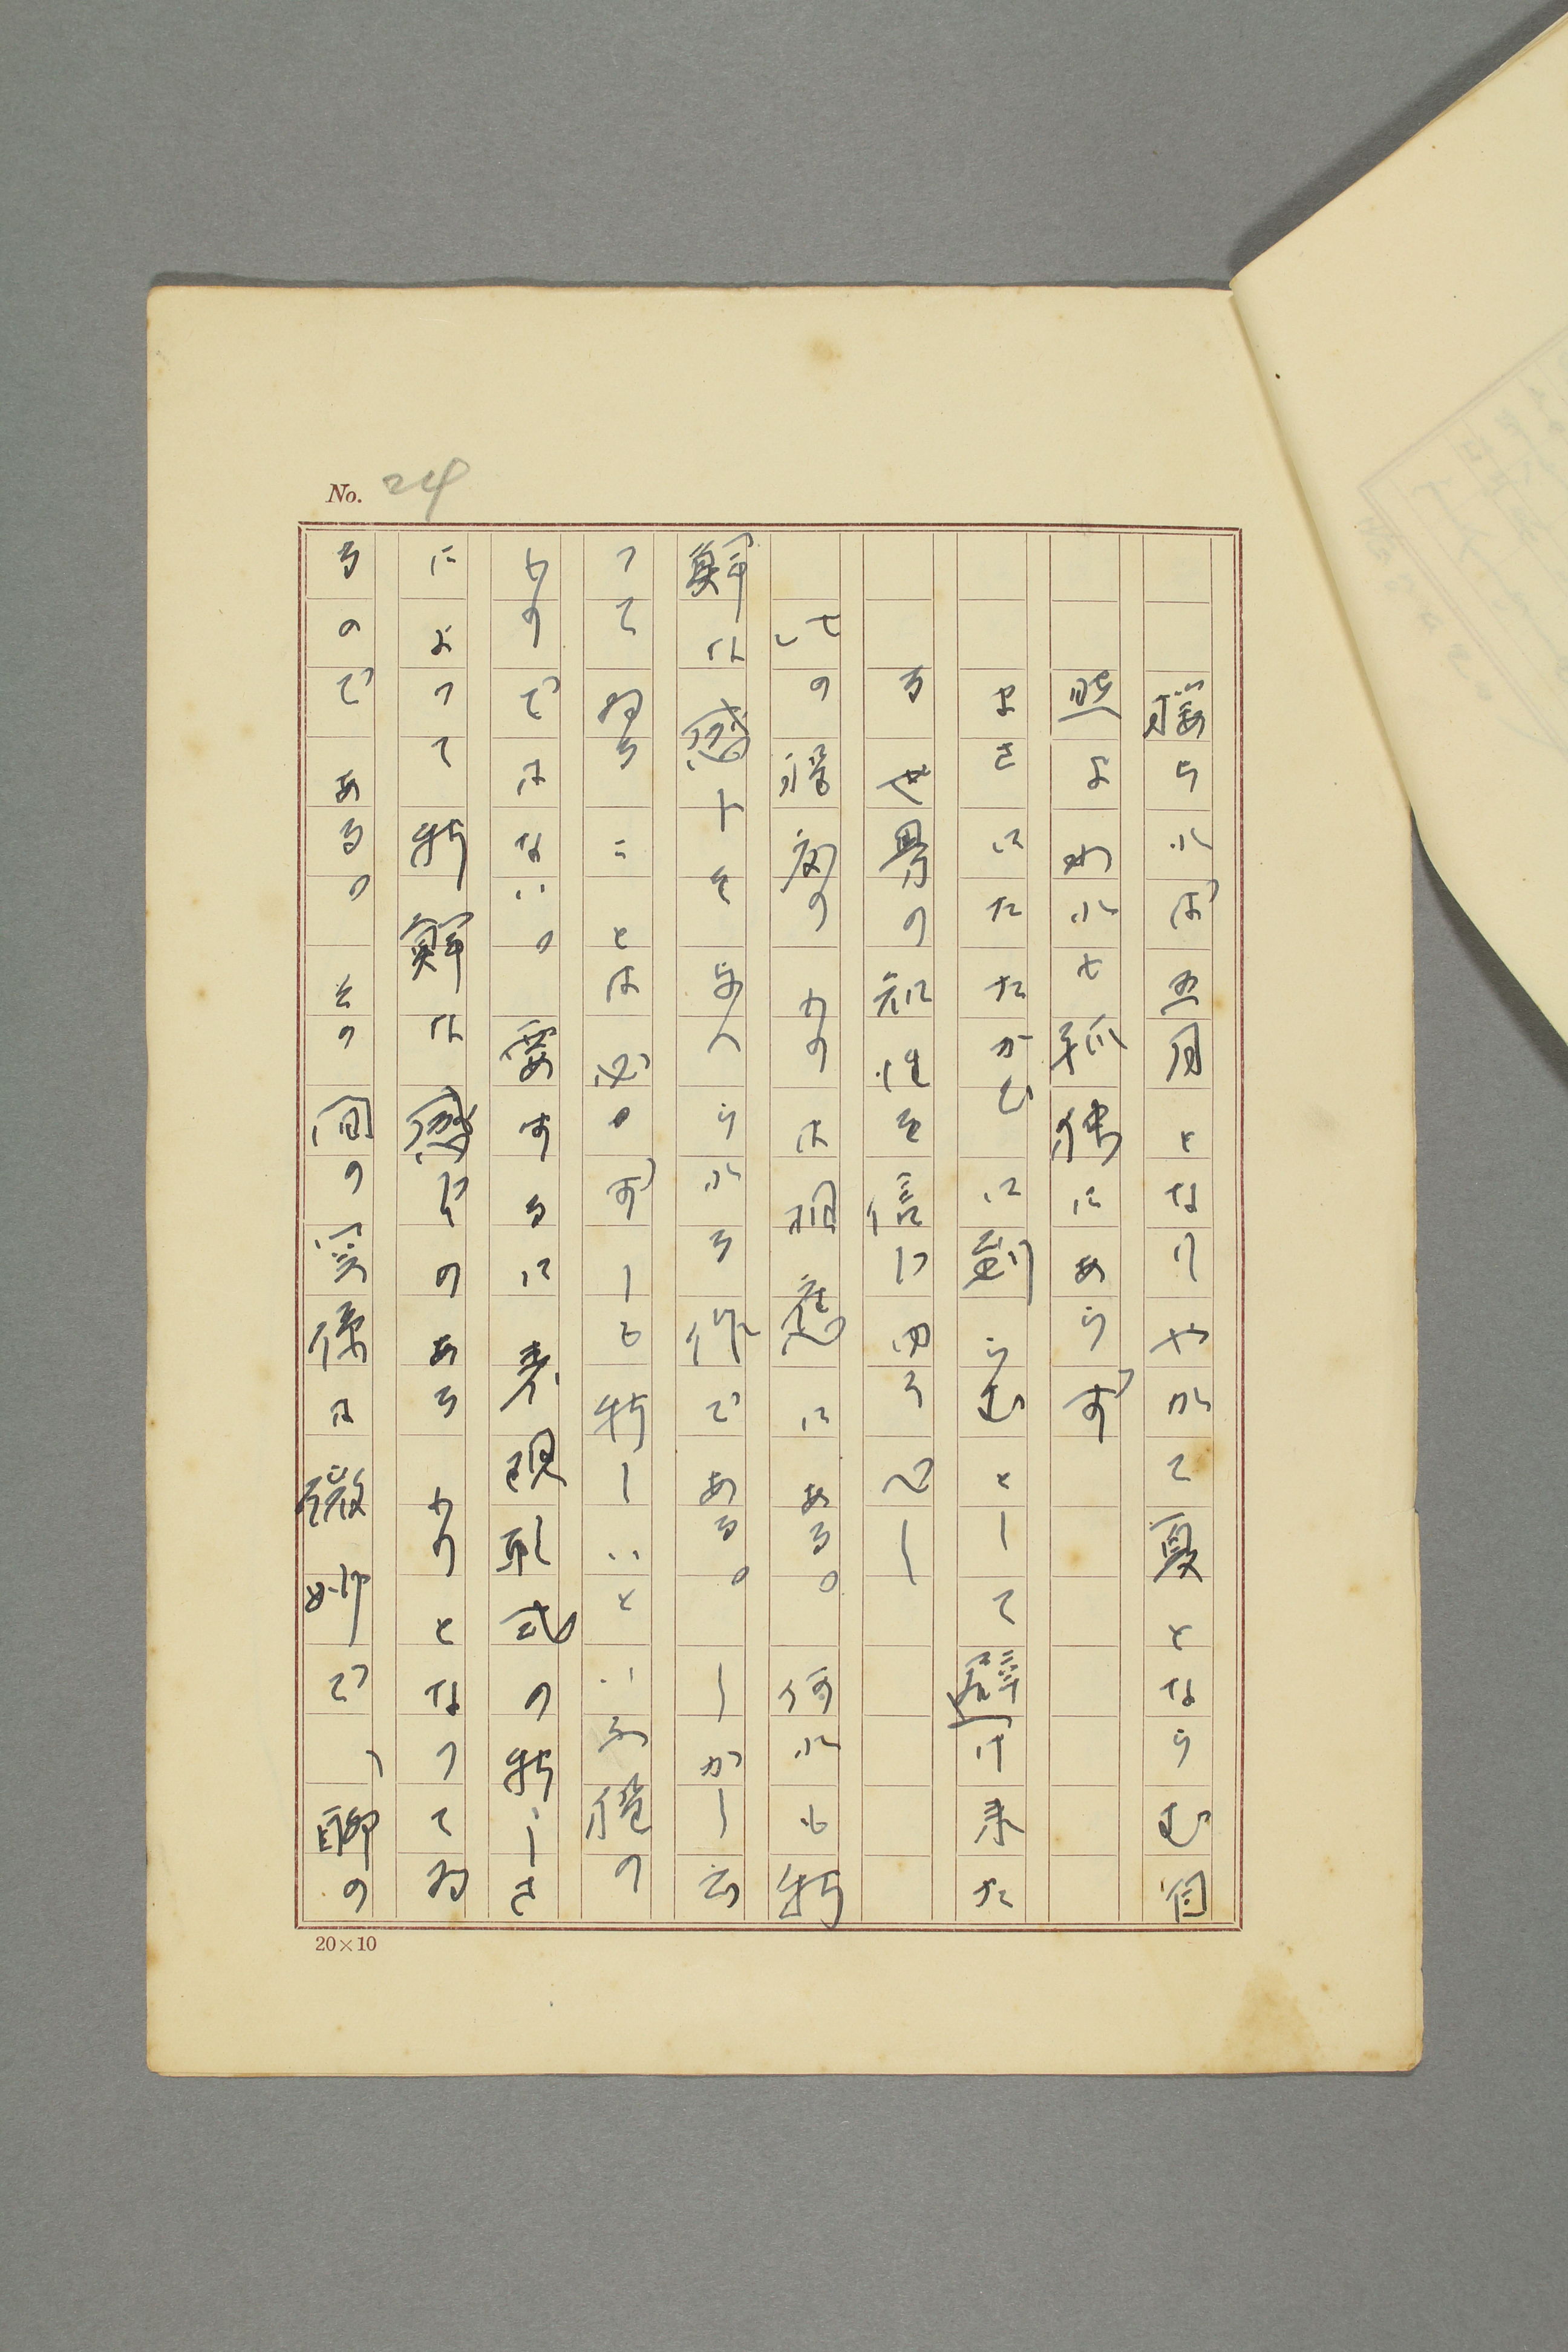 No. 24
櫻ちれば五月となりやがて夏とならむ自
然よわれや孤獨にあらず
まさにたたかひに創らむとして来た
る世界の知性を信じ思う心
此の程度のものは相應にある。何れも新
鮮な感じを与へられる作である。しかし云
つてゐることは必ずしも新しいといふ種の
ものではない。要するに表現形式の新しさ
によつて新鮮な感じのあるものとなつてゐ
るのである。その間の関係は微妙で、聊の
20×10